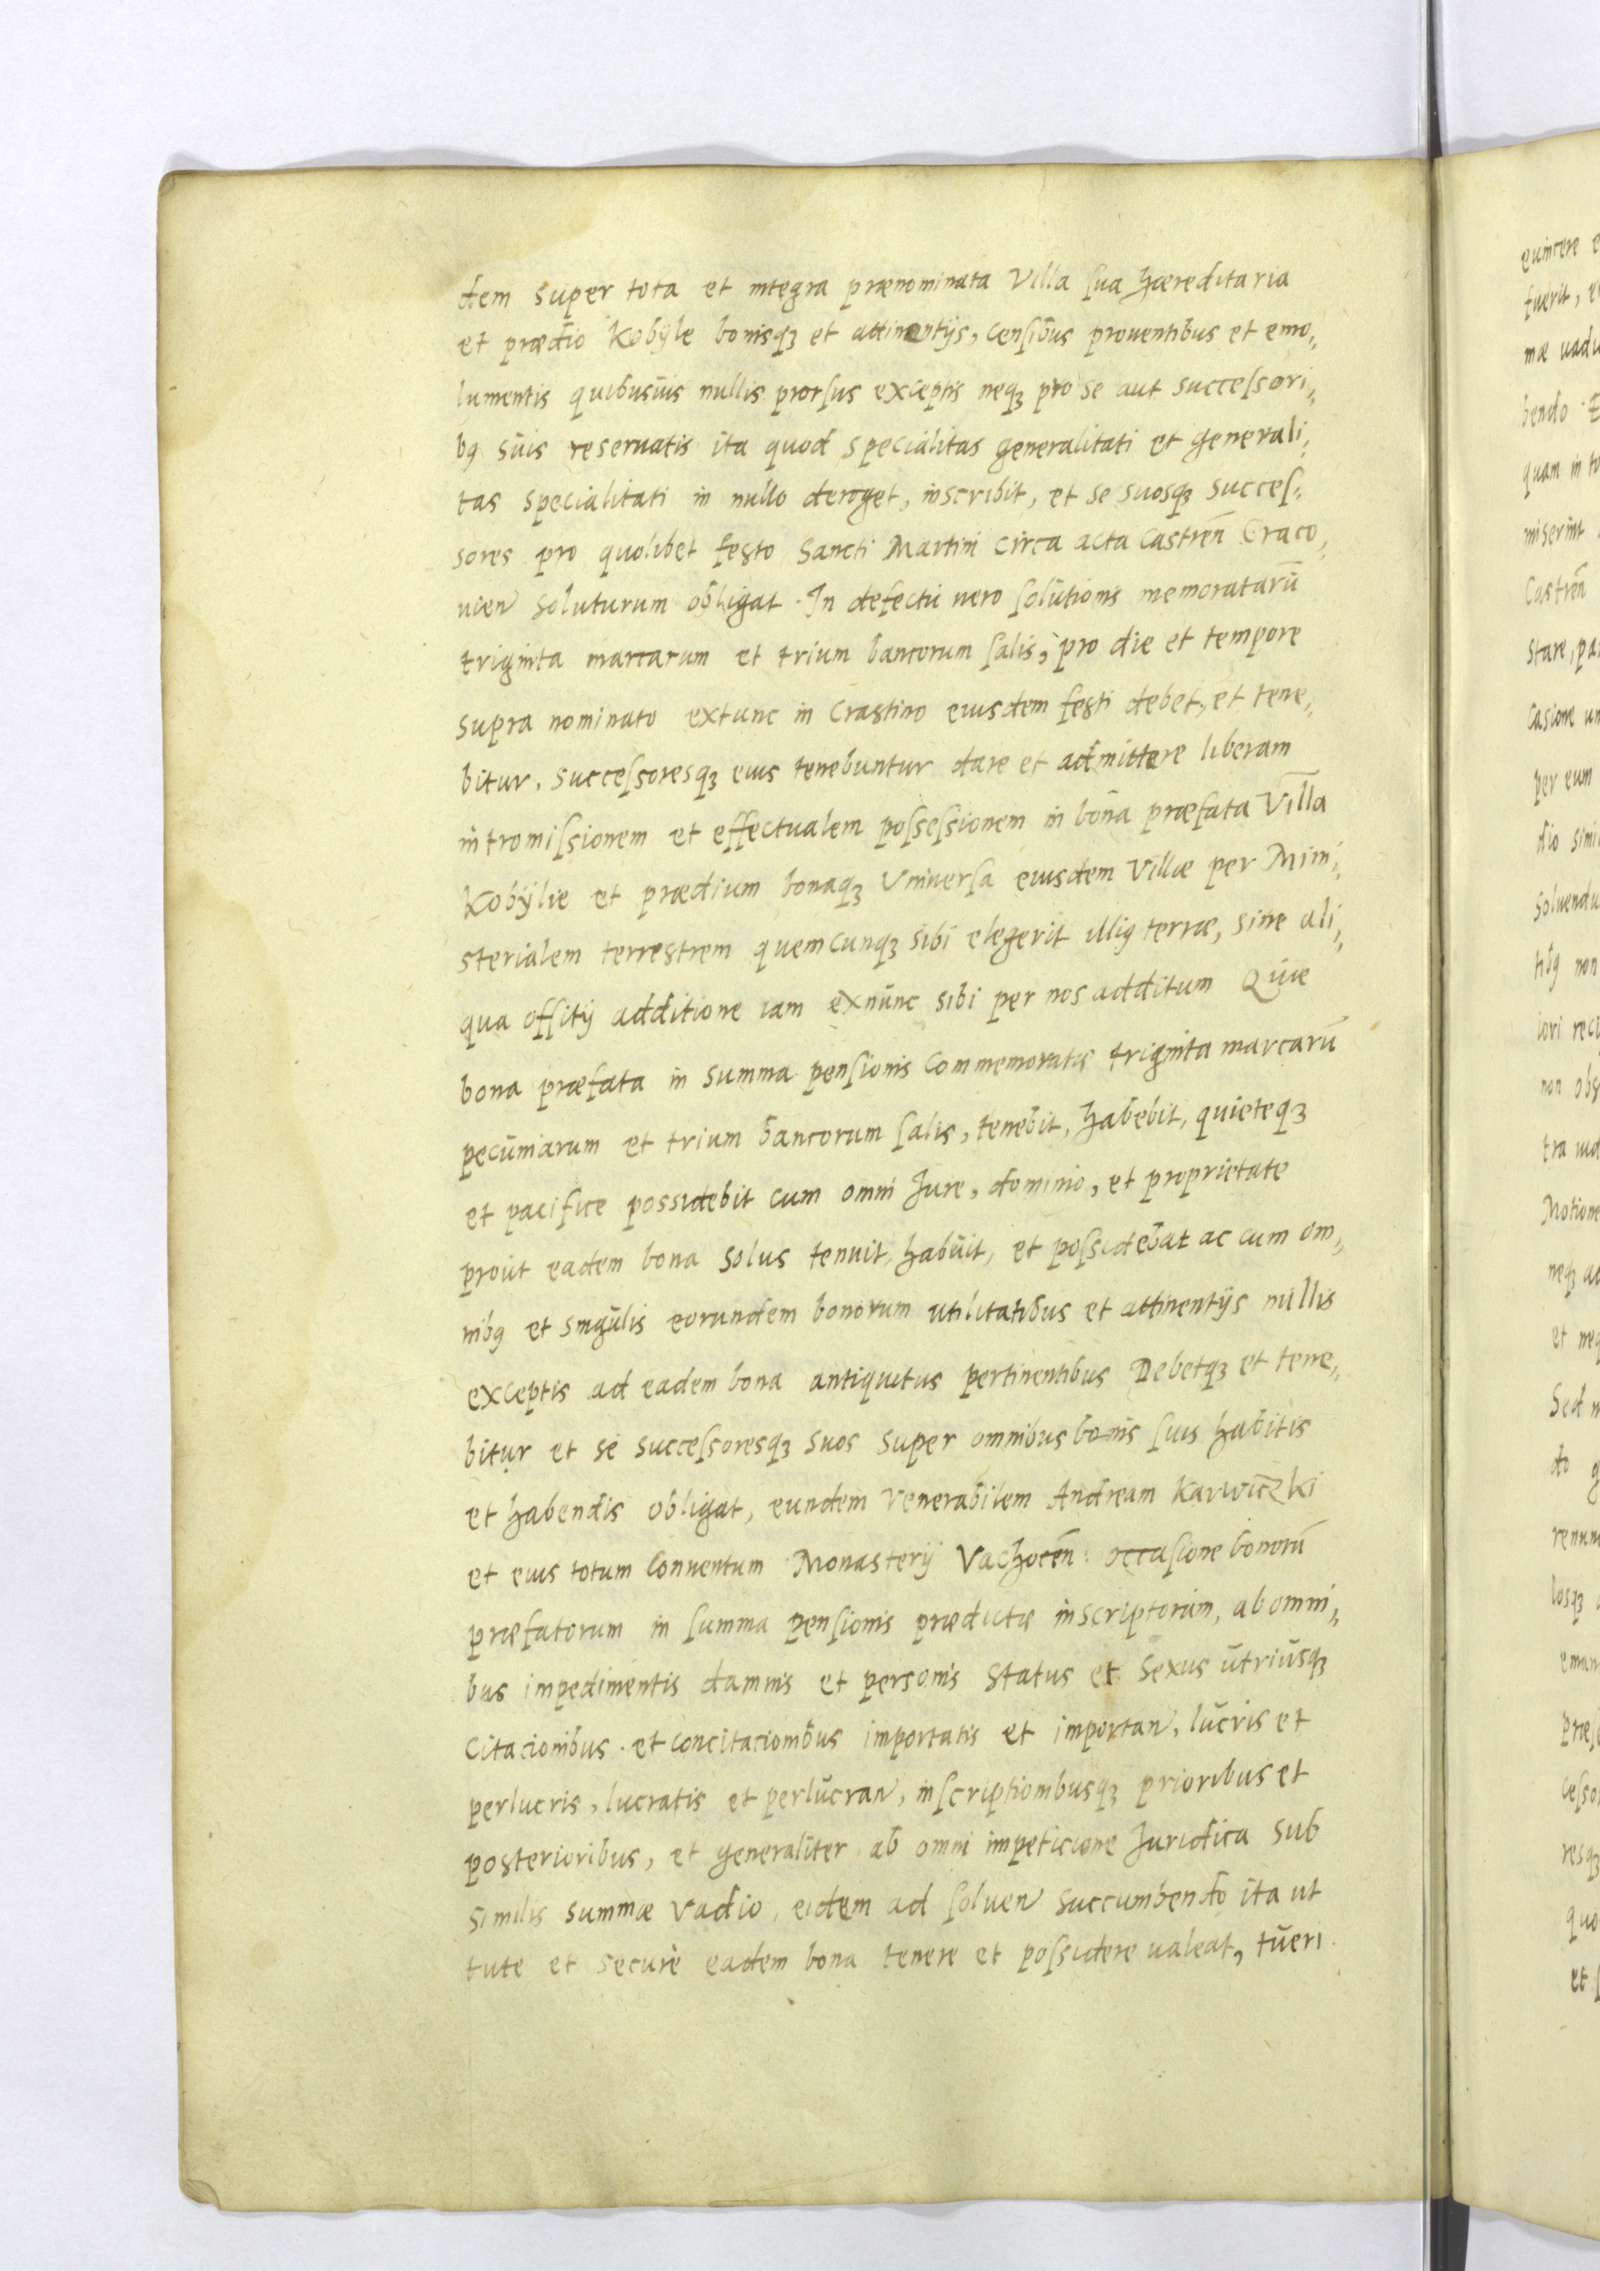 dem super tota et integra prænominata Villa sua hæreditaria
et prædio Kobÿle bonisqȝ et attinentÿs, censibus prouentibus et emo„
lumentis quibusuis nullis prorsus exceptis neqȝ pro se aut successori„
bꝯ suis reseruatis ita quod specialitas generalitati et generali„
tas specialitati in nullo deroget, inscribit, et se suosqȝ succes„
sores pro quolibet festo Sancti Martini circa acta Castreñ Craco„
uien soluturum obligat. In defectu uero solutionis memoratarū
triginta marcarum et trium bancorum salis, pro die et tempore
supra nominato extunc in Crastino eiusdem festi debet, et tene„
bitur, successoresqȝ eius tenebuntur dare et admittere liberam
intromissionem et effectualem possessionem in bona præfata Villa
Kobÿlie et prædium bonaqȝ Vniuersa eiusdem Villæ per Mini„
sterialem terrestrem quemcunqȝ sibi elegerit illiꝯ terræ, sine ali„
qua offitÿ additione iam exnunc sibi per nos additum Quæ
bona præfata in summa pensionis commemoratæ triginta marcarū
pecuniarum et trium bancorum salis, tenebit, habebit, quieteqȝ
et pacifice possidebit cum omni Jure, dominio, et proprietate
prout eadem bona solus tenuit, habuit, et possidebat ac cum om„
nibꝯ et singulis eorundem bonorum utilitatibus et attinentÿs nullis
exceptis ad eadem bona antiquitus pertinentibus Debetqȝ et tene„
bitur et se successoresqȝ suos super omnibus bonis suis habitis
et habendis obligat, eundem Venerabilem Andream Karwiczki
et eius totum Conuentum Monasterÿ Vachoceñ: occasione bonorū
præfatorum in summa pensionis prædictæ inscriptorum, ab omni„
bus impedimentis damnis et personis status et sexus utriusqȝ
Citacionibus et concitacionibus importatis et importan, lucris et
perlucris, lucratis et perlucran, inscriptionibusqȝ prioribus et
posterioribus, et generaliter ab omni impeticione Juridica sub
similis summæ Vadio, eidem ad soluen succumbendo ita ut
tute et securè eadem bona tenere et possidere ualeat, tueri